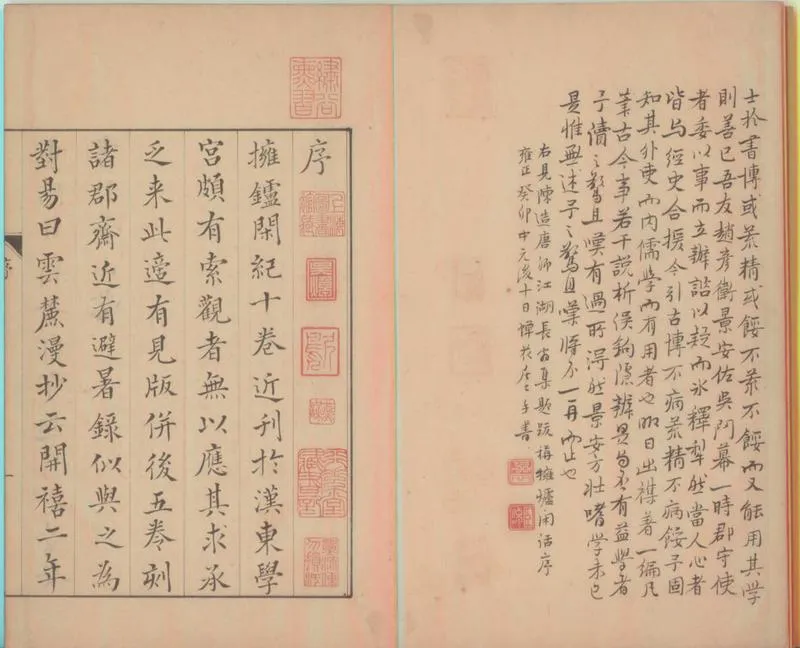 士於書博或荒精或餒不荒不餒而又能用其學
則善已吾友趙彥衛景安佐吳門幕一時郡守使
者委以事而立辦諮以疑而氷釋犁然當人心者
皆与經史合援今引古博不病荒精不病餒予固
知其外吏而內儒學而有用者也暇日出襍著一編凡
古今事若干說析误鉤隱辨是与否有益學者
予讀之驚且嘆有過所得然景安方壯嗜學未已
是惟無述予之驚且嘆將不一再而止也
右見陳造唐卿江湖長翁集題跋稱擁爐閑話序
雍正癸卯中元後十日焯手書
繡谷熏習
序
吳焯
擁鑪閑紀十卷近刊於漢東學
宮頗有索觀者無以應其求承
乏来此適有見版併後五卷刻
諸郡齋近有避暑錄似與之為
對易曰雲麓漫抄云開禧二年